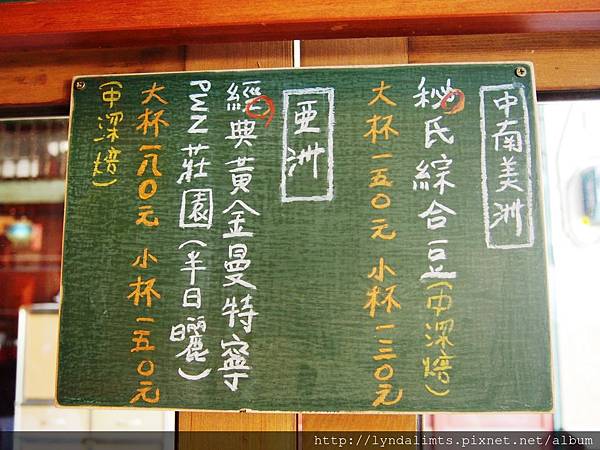 中南美洲
秘氏綜合豆(中深焙)
大杯一五〇元 小杯一三〇元
亞洲
經典黃金曼特寧
PWN莊園(半日曬)
大杯一八〇元 小杯一五〇元
(中深焙)
http://lyndalimts.pixnet.net/album